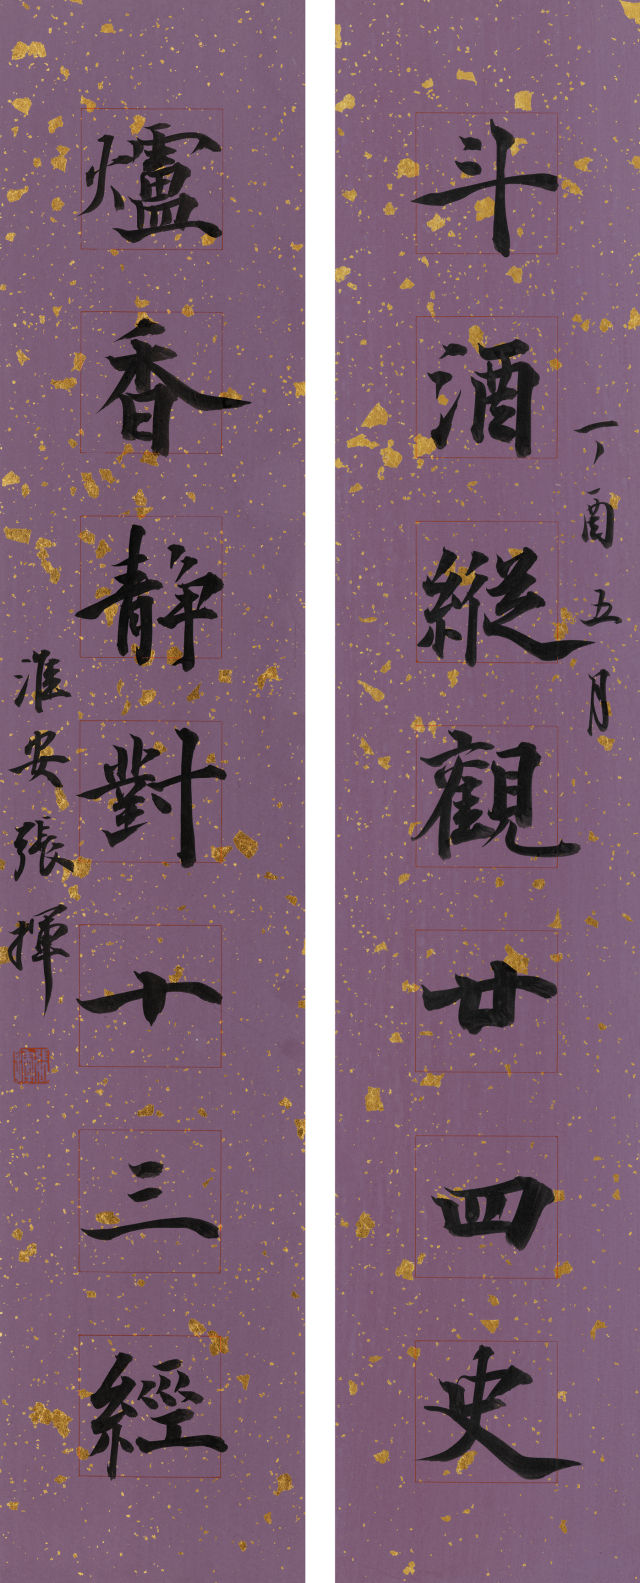 斗酒縱觀廿四史
丁酉五月
爐香静對十三經
淮安張揮